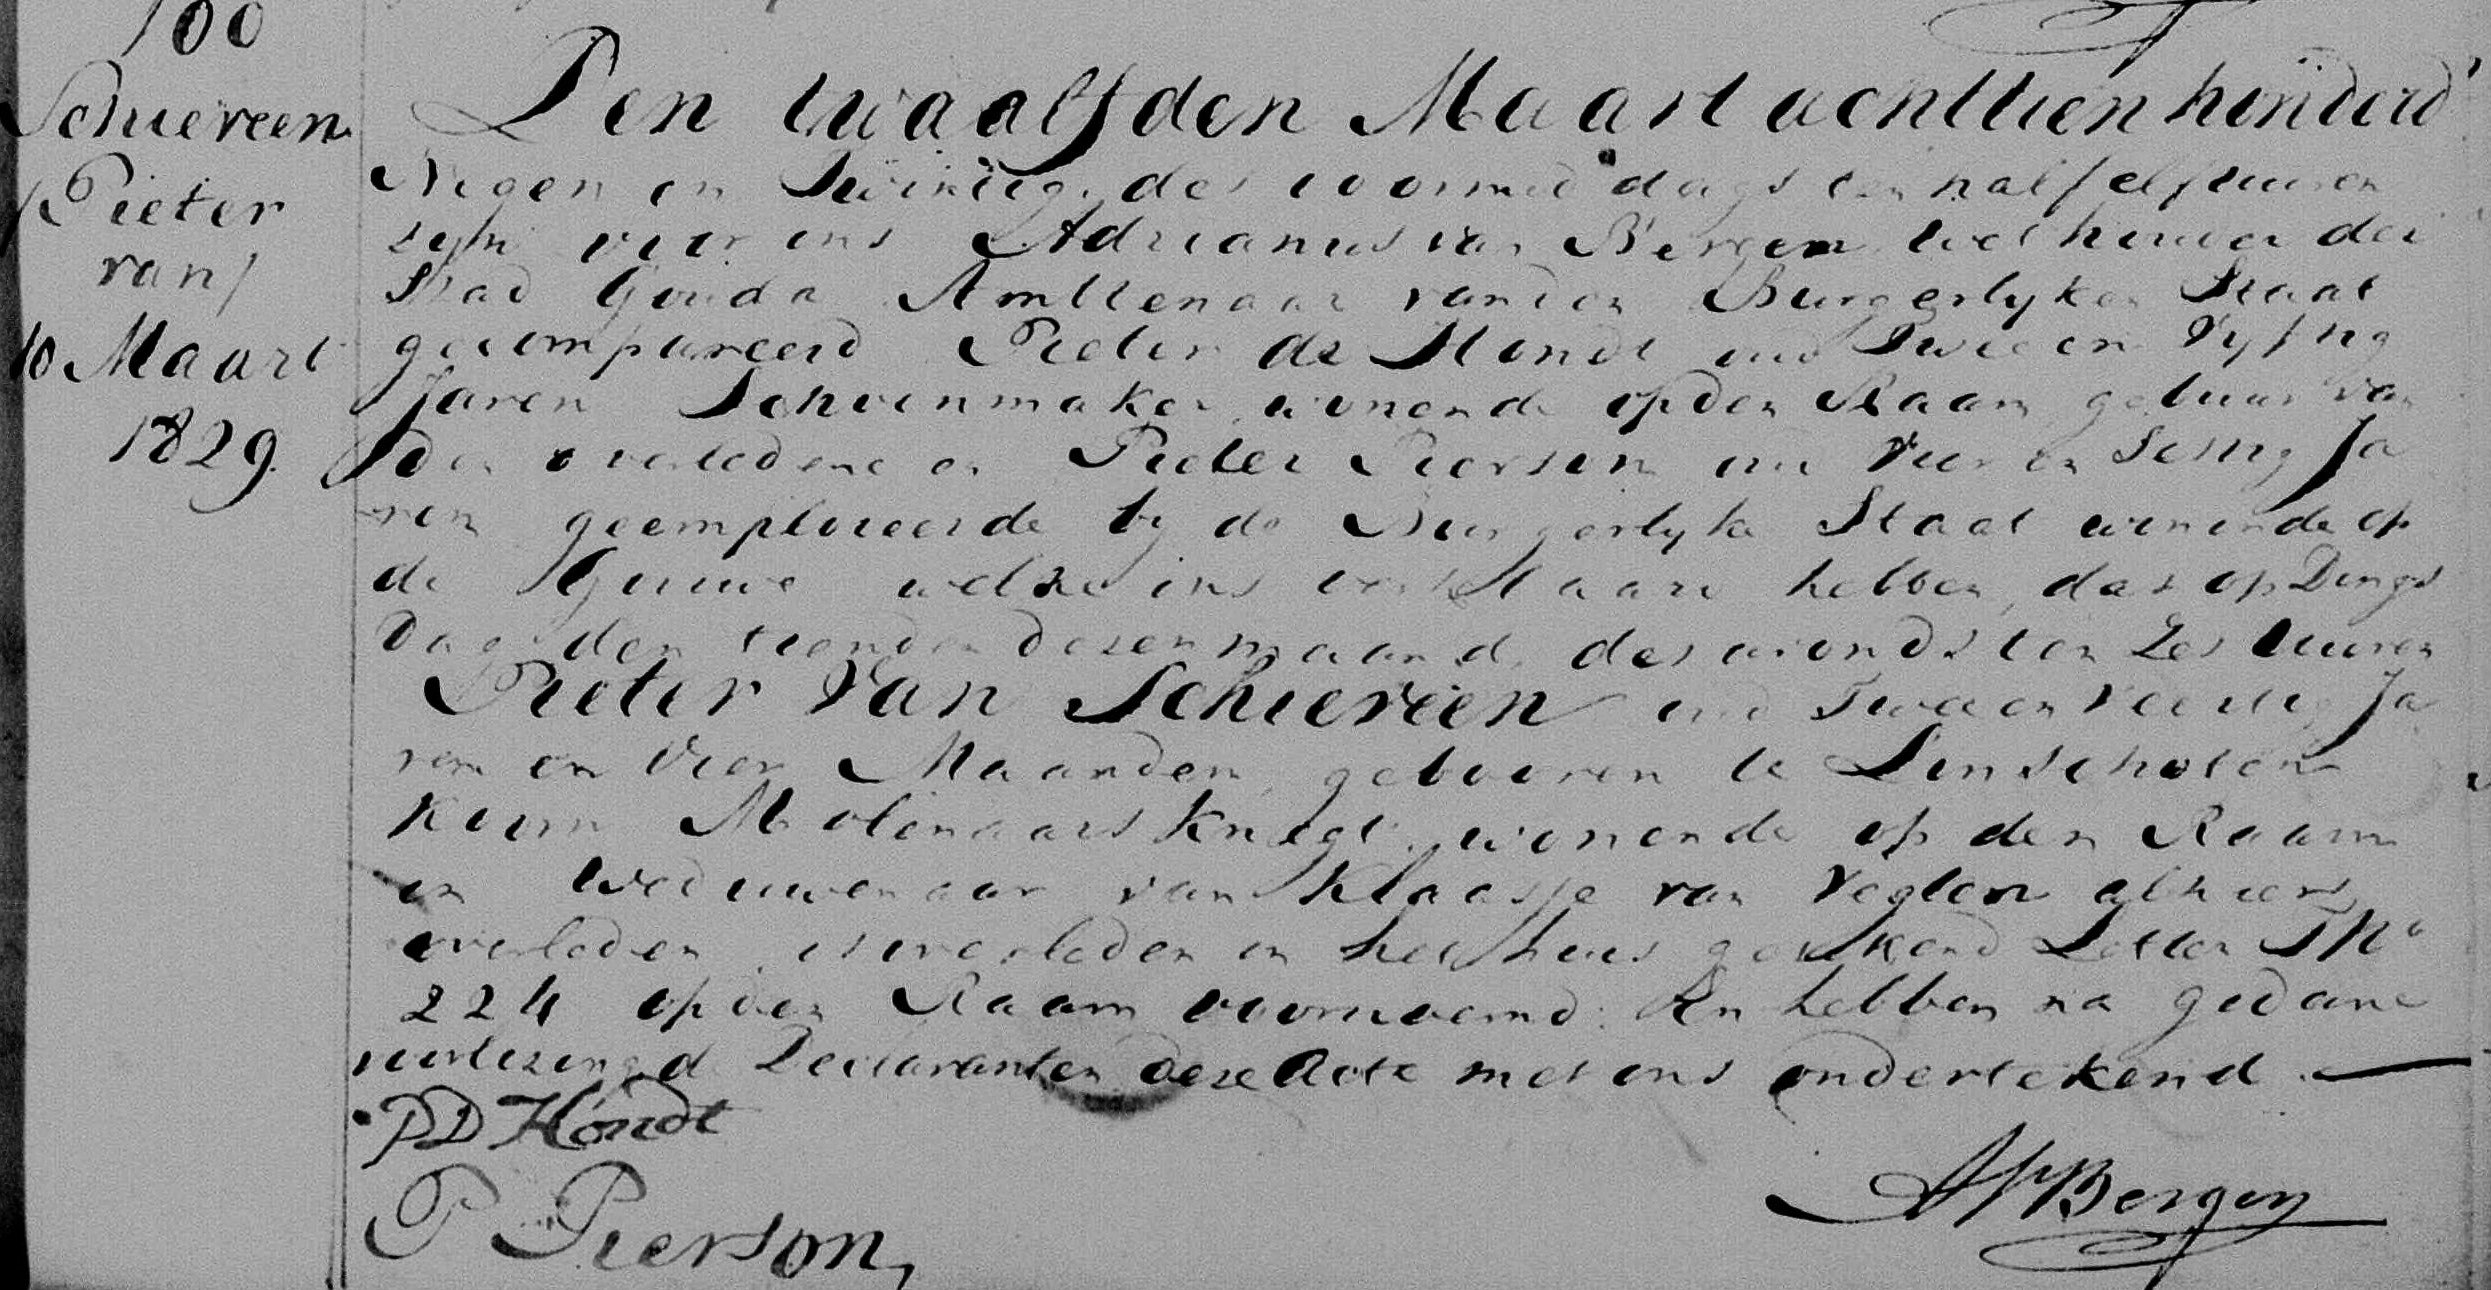 100
Schiereen
/Pieter
van/
10 Maart
1829.
Den twaalfden Maart achttien honderd
Negen en Twintig, des voormiddags ten half elf uuren
zyn voor ons Adrianus van Bergen Wethouder der
Stad Gouda Ambtenaar van den Burgerlyken Staat
gecompareerd Pieter de Hondt oud Twee en Vyftig
Jaren Schoenmaker, wonende op den Raam, gebuur van
den overledene en Pieter Pierson oud Vier en Sestig Ja
ren geemploieerde by de Burgerlyke Staat wonende op
de Gouwe welke ons verklaard hebben, dat op Dings
dag den tienden dezer maand, des avonds ten Zes Uuren
Pieter Van Schiereen oud Twee en Veertig Ja
ren en Vier Maanden, gebooren te Linschoten
Koorn Molenaars Knegt, wonende op den Raam
en Weduwenaar van Klaasje van Vegten alhier
overleden, is overleden in het huis getekend Letter I No
224 op den Raam voornoemd. En hebben na gedane
voorlezing de Declaranten deze Acte met ons ondertekend.
PD Hondt
P Pierson,
AVBergen